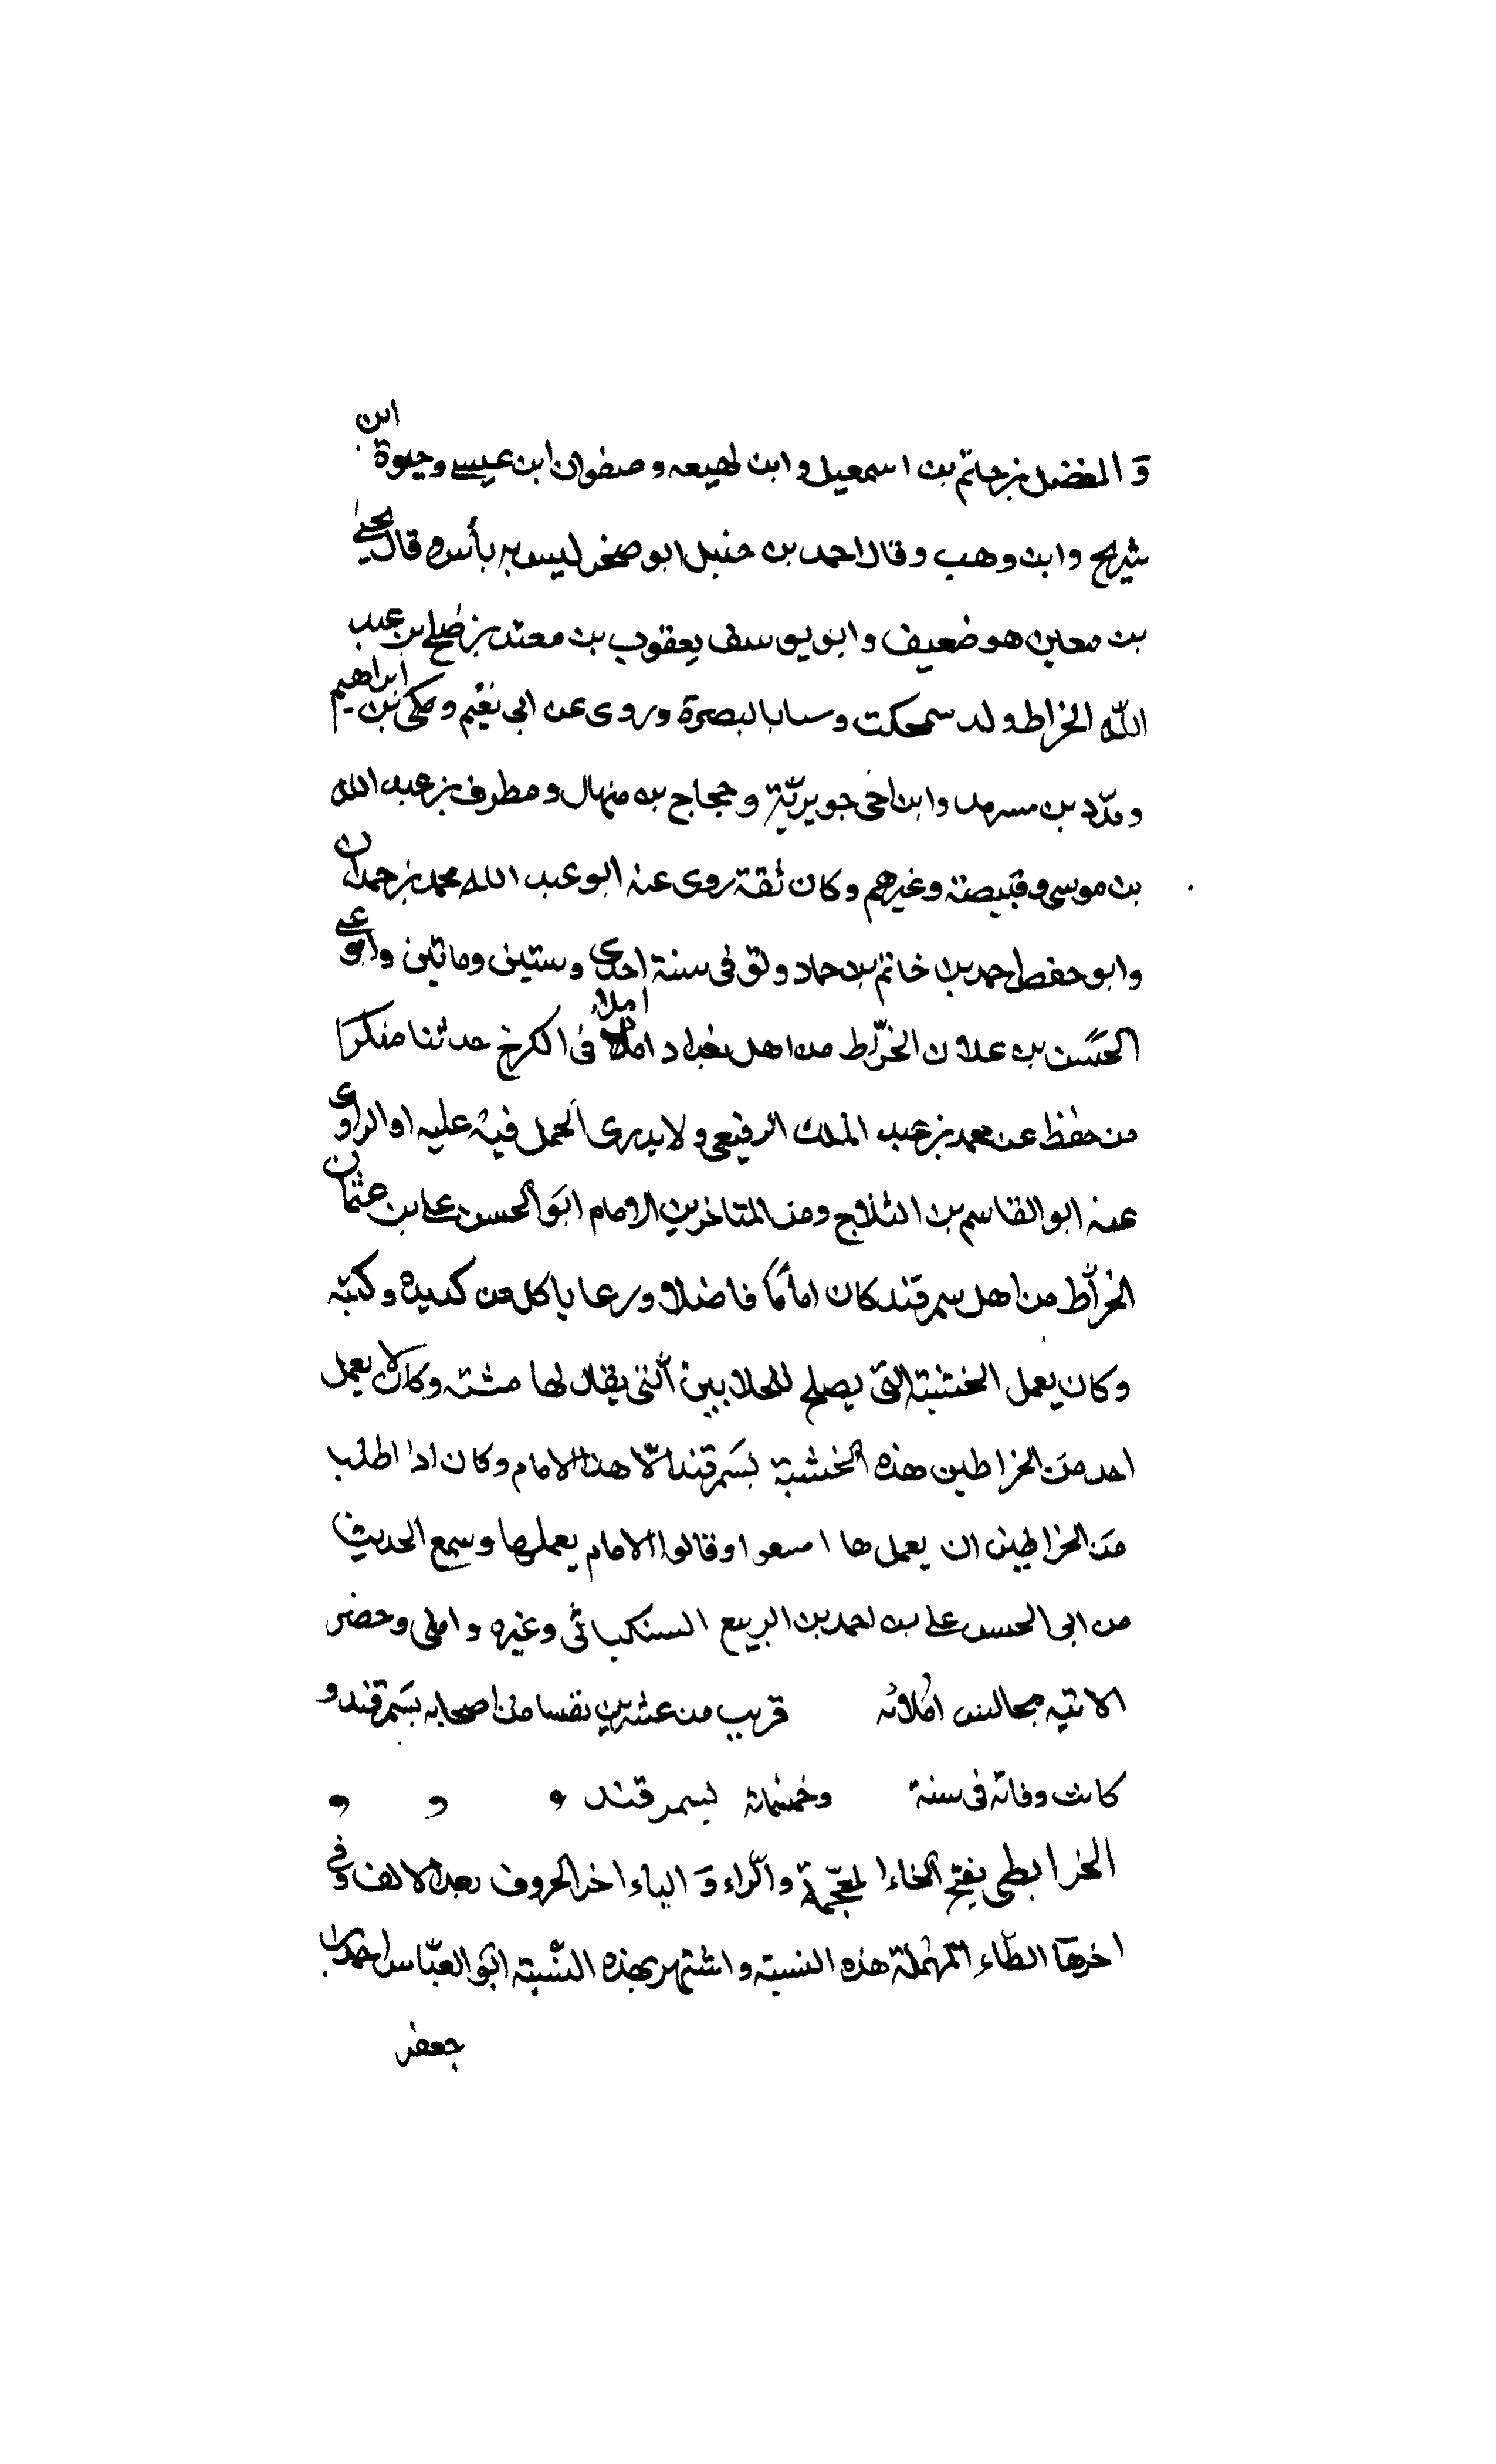 وَ المفضل بن حاتم بن اسمعيل و ابن لهيعه و صفوان ابن عيسى و حيوة ابن
شريح وابن وهب وقال احمد بن حنبل ابو صخر ليس به بأس و قال يحيى
بن معين هو ضعيف وابو يوسف يعقوب بن معبد بن صلح بن عبد
الله الخراط ولد وسا بالبصرة وروى عن ابى نعيم و مكى بن ابراهيم
و بن مسرهد وابن اخى جويريّة و حجاج بن منهال و مطرف بن عبد الله
بن موسى و قبيصة وغيرهم وكان ثقة روى عنه ابو عبد الله محمد بن حمدان
وابو حفص احمد بن حاتم بن حماد وتوفى فى سنة احدى وستين وماتين وابو على
الحسن بن علان الخرّاط من اهل بغداد املاء املاء فى الكرخ حدثنا منكرا
من حفظ عن محمد بن عبد الملك الدقيقى ولا يدرى الحمل فيه عليه او الراوى
عنه ابو القاسم بن الثلاج ومن المتاخرين الامام ابو الحسن على بن عثمان
الخرّاط من اهل سمرقند كان امامًا فاضلا ورعا ياكل من كد يده وكتبه
وكان يعمل الخشبة التى يصلح للحلابين الّتى يقال لها مشته وكان لا يعمل
احد من الخراطين هذه الخشبة بسمرقند الّا هذا الامام وكان اذا اطلب
من الخراطين ان يعمل ها امتنعوا وقالوا الامام يعملها وسمع الحديث
من ابى الحسن على بن احمد بن الربيع السنكباثى وغيره واملى وحضر
الاتيه مجالس املائه قريب من عشرين نفسا من اصحابه بسمرقند و
كانت وفاته فى سنة وخمسمائه بسمرقند و و و
الخرابطى بفتح الخاء المعجمة والرّاء وَ الياء اخر الحروف بعد الالف وفى
اخرها الطّاء المهملة هذه النسبة واشتهر بهذه النّسبة ابو العبّاس احمد بن
جعفر